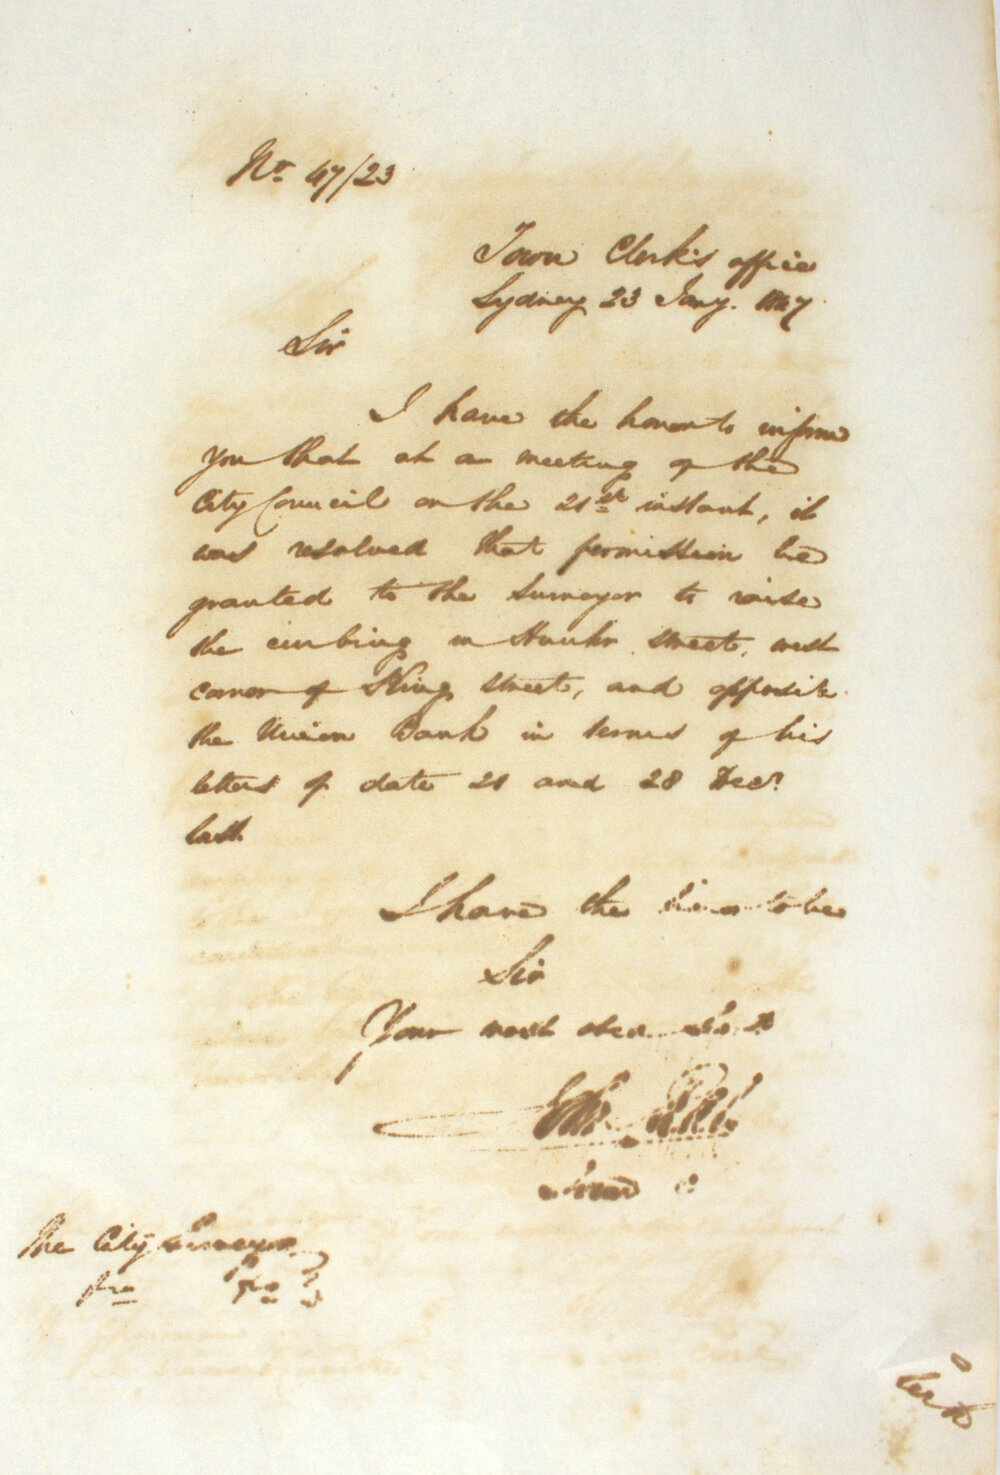 No. 47/23
Town Clerk's office
Sydney 23 Jany. 1847
Sir
I have the honor to inform
you that at a meeting of the
City Council on the 21st instant, it
was resolved that permission be
granted to the Surveyor to raise
the curbing in Hunter street, west
corner of King street, and opposite
the Union Bank in terms of his
letters of date 21 and 28 Decr.
last.
I have the honor to be
Sir
Your most
Town
The City Surveyor
&c &c